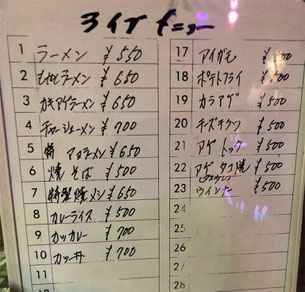 メニュー
1 ラーメン ¥550
2 ラーメン ¥650
3 カキアゲラーメン ¥650
4 チャーシューメン ¥700
5 特 ラーメン ¥650
6 焼そば ¥500
7 特製焼メン ¥650
8 カレーライス ¥500
9 カツカレー ¥700
10 カツ丼 ¥700
11
12
17 アイガモ ¥500
18 ポテトフライ ¥500
19 カラアゲ ¥500
20 チーズチクワ ¥500
21 アゲ ¥500
22 アゲタコ焼 ¥500
23 ウインナー ¥500
24
25
26
27
28